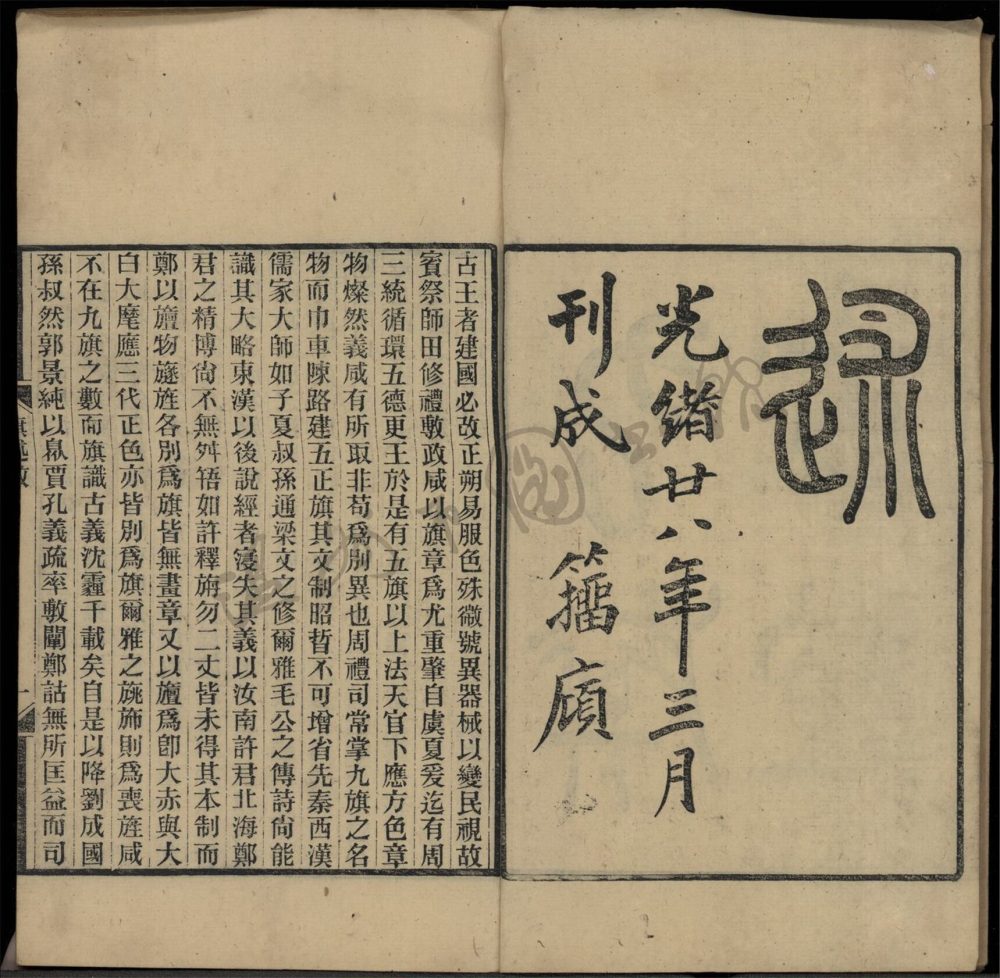 述
光緒廿八年三月
刊成 籀廎
古王者建國必改正朔易服色殊徽號異器械以變民視故
賓祭師田修禮敷政咸以旗章爲尤重肇自虞夏爰迄有周
三統循環五德更王於是有五旗以上法天官下應方色章
物燦然義咸有所取非苟爲別異也周禮司常掌九旗之名
物而巾車陳路建五正旗其文制昭晳不可增省先秦西漢
儒家大師如子夏叔孫通梁文之修爾雅毛公之傳詩尙能
識其大略東漢以後說經者寖失其義以汝南許君北海鄭
君之精博尙不無舛啎如許釋旃勿二文皆未得其本制而
鄭以旜物旞旌各別爲旗皆無畫章又以旜爲卽大赤與大
白大麾應三代正色亦皆別爲旗爾雅之旐旆則爲喪旌咸
不在九旗之數而旗識古義沈霾千載矣自是以降劉成國
孫叔然郭景純以臮賈孔義疏率敷闡鄭詁無所匡益而司
旗述敘
一